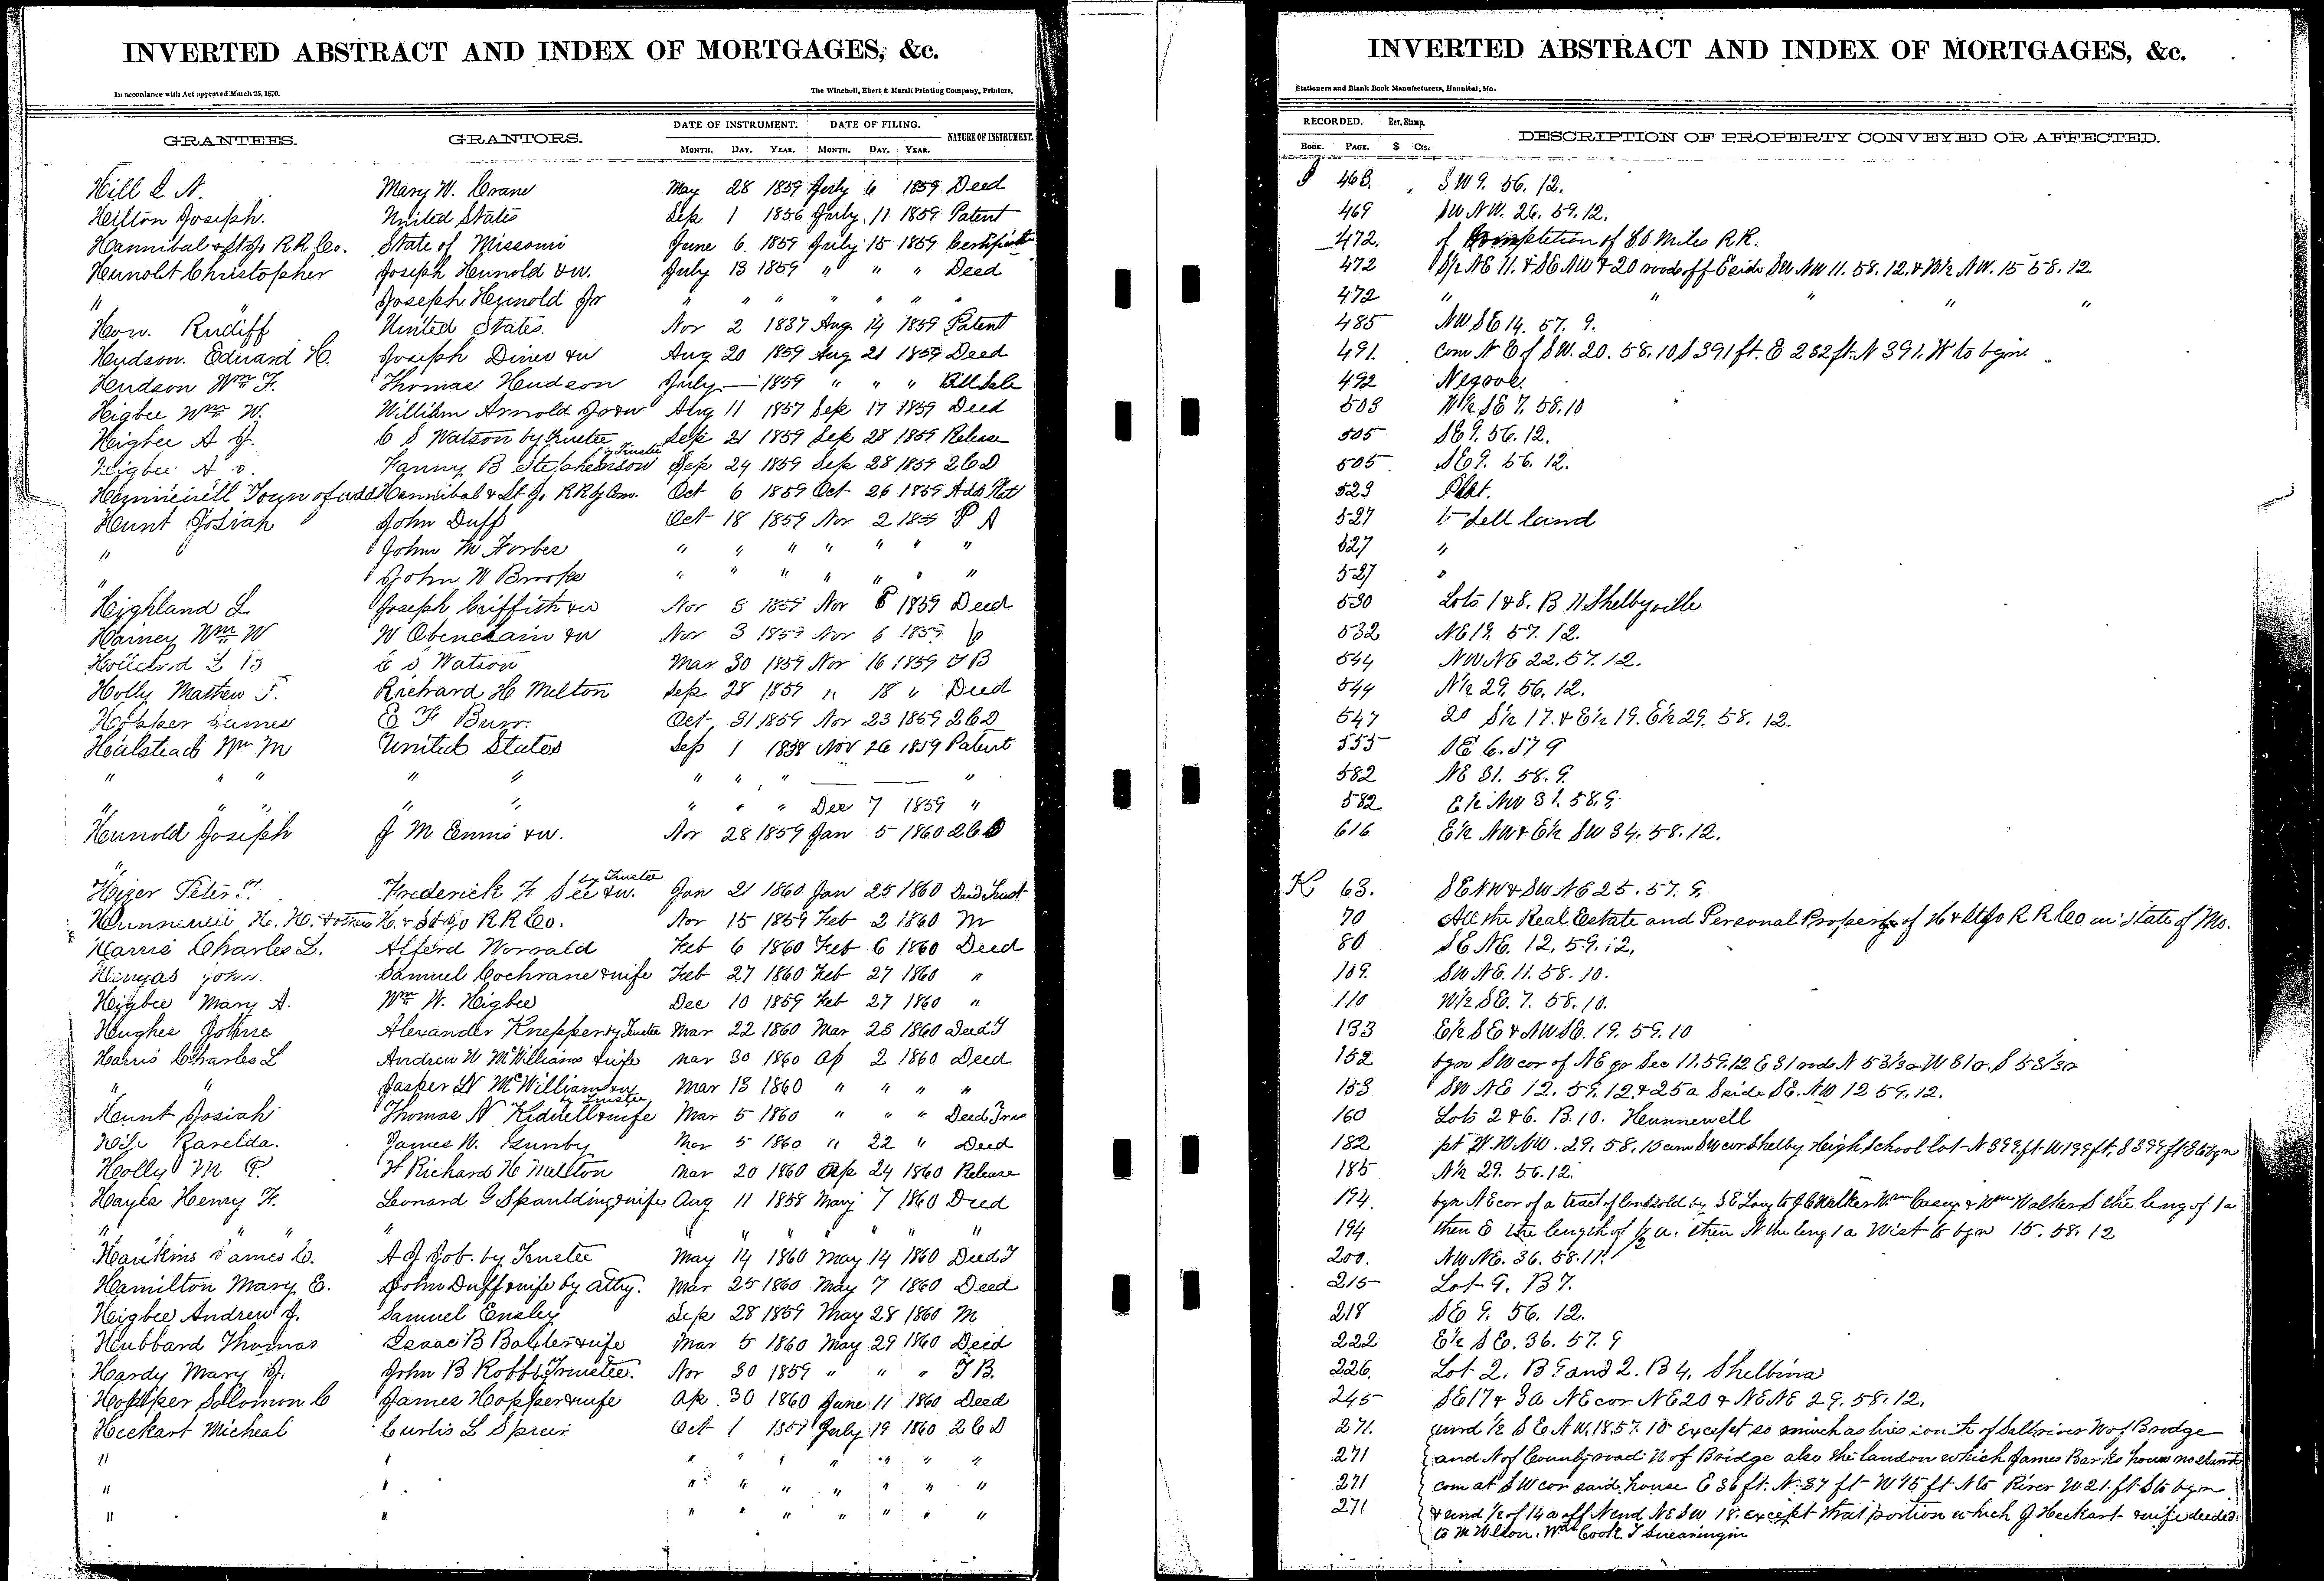 INVERTED ABSTRACT AND INDEX OF MORTGAGES, &c.
In accordance with Act approved March 25, 1870.
The Winchell, Ebert & Marsh Printing Company, Printers,
GRANTEES. GRANTORS. DATE OF INSTRUMENT. DATE OF FILING. NATURE OF INSTRUMENT.
MONTH. DAY. YEAR. MONTH. DAY. YEAR.
Hill L N. Mary W. Crane May 28 1859 July 6 1859 Deed
Hilton Joseph. United States Sep 1 1856 July 11 1859 Patent
Hannibal & St Jo R R Co. State of Missouri June 6. 1859 July 15 1859 Certificate
Hunolt Christopher Joseph Hunold & w. July 13 1859 " " " Deed
" Joseph Hunold Jr " " " " " " "
How. Rudiff United States. Nov 2 1837 Aug. 14 1859 Patent
Hudson. Edward H. Joseph Dines & w Aug 20 1859 Aug 21 1859 Deed
Hudson Wm F. Thomas Hudson July — 1859 " " " Bill Sale
Higbee Wm W. William Arnold Jr & w Aug 11 1857 Sep 17 1859 Deed
Higbee A J. C S Watson by Trustee Sep 21 1859 Sep 28 1859 Release
Higbee A J. Fanny B Stephenson by Trustee Sep 24 1859 Sep 28 1859 2 C D
Hunnewell Town of add Hannibal & St Jo RR by Com. Oct 6 1859 Oct 26 1859 Add Plat
Hunt Josiah John Duff Oct 18 1859 Nov 2 1859 P A
" John M Forbes " " " " " " "
" John W Brooks " " " " " " "
Highland L Joseph Griffith & w Nov 5 1859 Nov 5 1859 Deed
Hainey Wm W W Obenchain & w Nov 3 1859 Nov 6 1859
L B C S Watson Mar 30 1859 Nov 16 1859 T B
Holly Mathew F. Richard H Melton Sep 28 1859 " 18 " Deed
Hopper James E F Burr. Oct 31 1859 Nov 23 1859 2 C D
Hulstead Wm M United States Sep 1 1838 Nov 26 1859 Patent
" " " " " " " " — — "
" " " " " " " " Dec 7 1859 "
Hunold Joseph J M Ennis & w. Nov 28 1859 Jan 5 1860 2 C D
"
Hizer Peter Frederick F See & w. by Trustee Jan 21 1860 Jan 25 1860 Deed Trust
Hunnewell H. H. & others H. & St Jo R R Co. Nov 15 1859 Feb 2 1860 M
Harris Charles L. Alferd Worrald Feb 6 1860 Feb 6 1860 Deed
John. Samuel Cochrane & wife Feb 27 1860 Feb 27 1860 "
Higbee Mary A. Wm W. Higbee Dec 10 1859 Feb 27 1860 "
Hughes Alexander Knepper by Trustee Mar 22 1860 Mar 23 1860 Deed T
Harris Charles L Andrew W McWilliams & wife Mar 30 1860 Ap 2 1860 Deed
" " Jasper N McWilliams & w Mar 13 1860 " " " "
Hunt Josiah Thomas N Kidwell & wife by Trustee Mar 5 1860 " " " Deed Trus
Razelda. James W. Gunby Mar 5 1860 " 22 " Deed
Holly M F. F Richard H Mellton Mar 20 1860 Ap 24 1860 Release
Hayes Henry F. Leonard G Spaulding & wife Aug 11 1858 May 7 1860 Deed
" " " " " " " " " " "
Hawkins James C. A J Job. by Trustee May 14 1860 May 14 1860 Deed T
Hamilton Mary E. John Duff & wife by Atty. Mar 25 1860 May 7 1860 Deed
Higbee Andrew J. Samuel Ensley Sep 28 1859 May 28 1860 M
Hubbard Thomas Isaac B Baxter & wife Mar 5 1860 May 29 1860 Deed
Hardy Mary J. John B Robb by Trustee. Nov 30 1859 " " " T B.
Hopper Solomon C James Hopper & wife Ap. 30 1860 June 11 1860 Deed
Heckart Micheal Curtis L Speer Oct 1 1859 July 19 1860 2 C D
" " " " " " " " "
" " " " " " " " "
" " " " " " " " "
INVERTED ABSTRACT AND INDEX OF MORTGAGES, &c.
Stationers and Blank Book Manufacturers, Hannibal, Mo.
RECORDED. Rev. Stamp. DESCRIPTION OF PROPERTY CONVEYED OR AFFECTED.
BOOK. PAGE. $ Cts.
J 463. SW 9. 56. 12.
469 SW NW. 26. 59. 12.
472. of Completion of 80 Miles R R.
472 S½ NE 11. & SE NW & 20 rods off E side SW NW 11. 58. 12. & W½ NW. 15 58. 12.
472 " " " " "
485 NW SE 14. 57. 9.
491. Com N E of SW. 20. 58. 10 S 391 ft. E 252 ft. N 391. W to bgin.
492 Negroes.
503 W½ SE 7. 58. 10
505 SE 9. 56. 12.
505. SE 9. 56. 12.
523 Plat.
527 to Sell land
527 "
527 "
530 Lots 1 & 8. B 11 Shelbyville
532 NE 19. 57. 12.
544 NW NE 22. 57. 12.
544 N½ 29. 56. 12.
547 20 S½ 17. & E½ 19. E½ 29. 58. 12.
555 SE 6. 57 9
582 NE 31. 58. 9.
582 E½ NW 31. 58. 9.
616 E½ NW & E½ SW 34. 58. 12.
K 63. SE NW & SW NE 25. 57. 9.
70 All the Real Estate and Personal Property of H & St Jo R R Co in State of Mo.
80 SE NE. 12. 59. 12.
109. SW NE. 11. 58. 10.
110 W½ SE. 7. 58. 10.
133 E½ SE & NW SE. 19. 59. 10
152 bgn SW cor of NE qr Sec 11. 59. 12 E 31 rods N 53⅓ W 31 S 53⅓
153 SW NE 12. 59. 12 & 25 a S side SE. NW 12 59. 12.
160 Lots 2 & 6. B. 10. Hunnewell
182 pt W. W NW. 29. 58. 10 com SW cor Shelby High School lot N 399 ft W 199 ft. S 399 ft E to bgn
185 N½ 29. 56. 12.
194. bgn NE cor of a tract of land sold by S E Long to J C Walker Wm Casey & Wm Walker S the leng of 1 a
194 then E the length of ½ a. then N the leng 1 a West to bgn 15. 58. 12
200. NW NE. 36. 58. 11.
215 Lot 9. B 7.
218 SE 9. 56. 12.
222 E½ SE. 36. 57. 9
226. Lot 2. B 9 and 2. B 4, Shelbina
245 SE 17 & 3 a NE cor NE 20 & NE NE 29. 58. 12.
271. und ½ S E N W. 18. 57. 10 Except so much as lies south of Saltriver W of Bridge
271 and N of County road N of Bridge also the land on which James Barks house now stands
271 com at SW cor said house E 36 ft. N. 37 ft W 15 ft N to River W 21. ft S to bgn
271 & und ½ of 14 a off N end NE SW 18. except that portion which J Heckart & wife deeded
to M Wilson. Wm Cook.